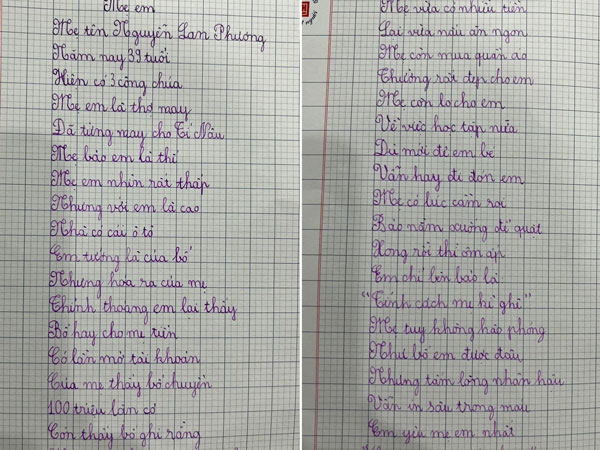 Mẹ em
Mẹ tên Nguyễn Lan Phương
Năm nay 39 tuổi
Hiện có 3 công chúa
Mẹ em là thợ may
Đã từng may cho Tí Nâu
Mẹ bảo em là thế
Mẹ em nhìn rất thấp
Nhưng với em là cao
Nhà có cái ô tô
Em tưởng là của bố
Nhưng hóa ra của mẹ
Thỉnh thoảng em lại thấy
Bố hay cho mẹ tiền
Có lần mở tài khoản
Của mẹ thấy bố chuyển
100 triệu lần cơ
Còn thấy bố ghi rằng
Mẹ vừa có nhiều tiền
Lại vừa nấu ăn ngon
Mẹ còn mua quần áo
Thường rất đẹp cho em
Mẹ còn lo cho em
Về việc học tập nữa
Dù mới đẻ em bé
Vẫn hay đi đón em
Mẹ có lúc cầm roi
Bảo nằm xuống để quát
Xong rồi thì ôm ấp
Em chỉ biết bảo là
"Tính cách mẹ kì ghê"
Mẹ tuy không hào phóng
Như bố em được đâu
Nhưng tấm lòng nhân hậu
Vẫn in sâu trong máu
Em yêu mẹ em nhất